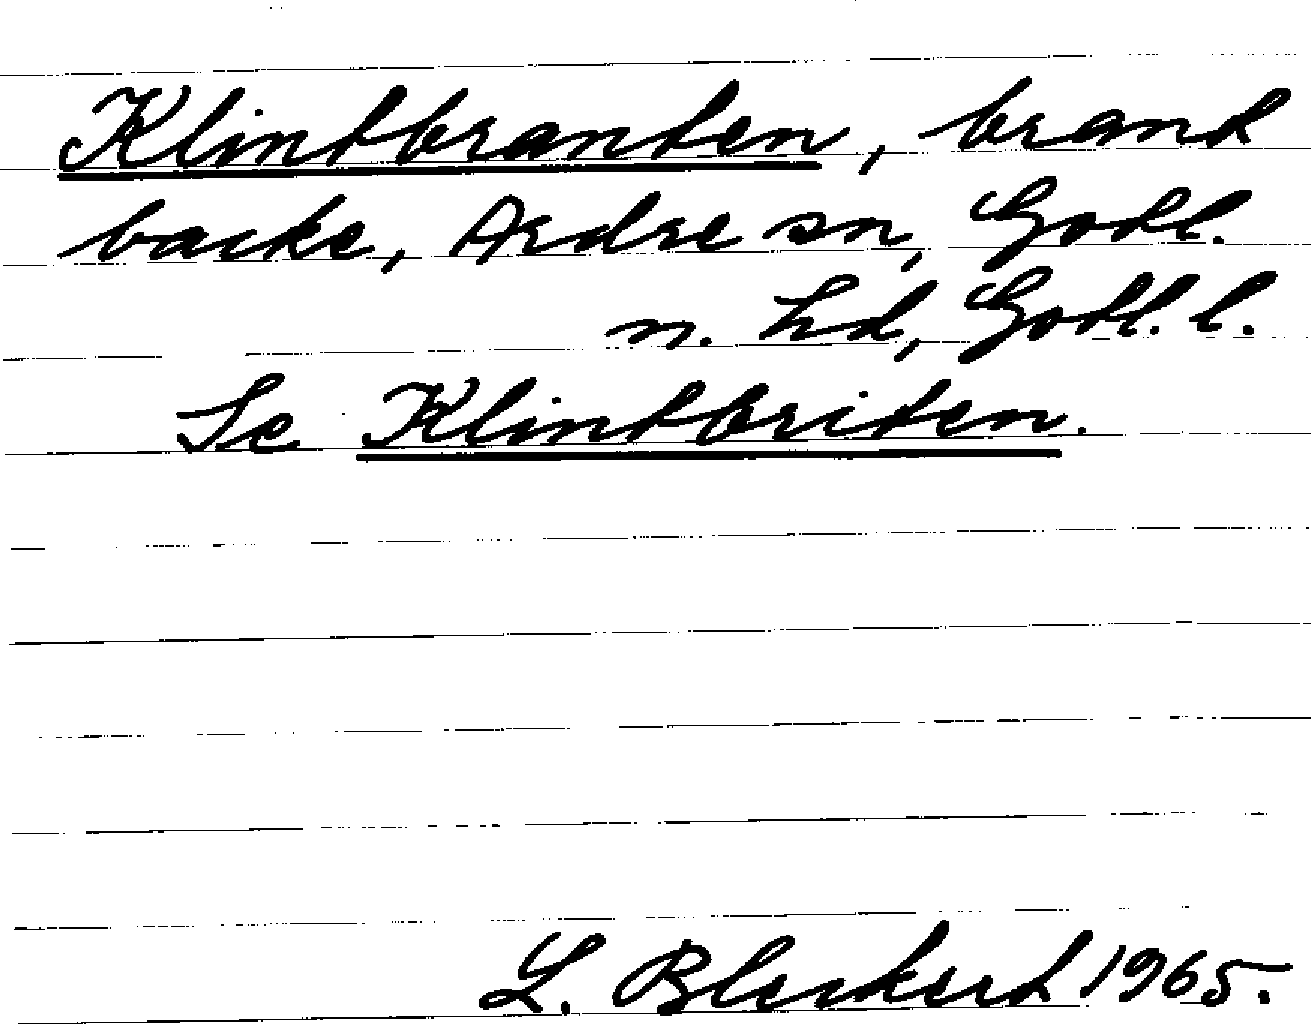 Klintbranten, brant
backe, Ardre sn, Gotl.
n. hd, Gotl. l.
Se Klintbriten.
L. Bleckert 1965.